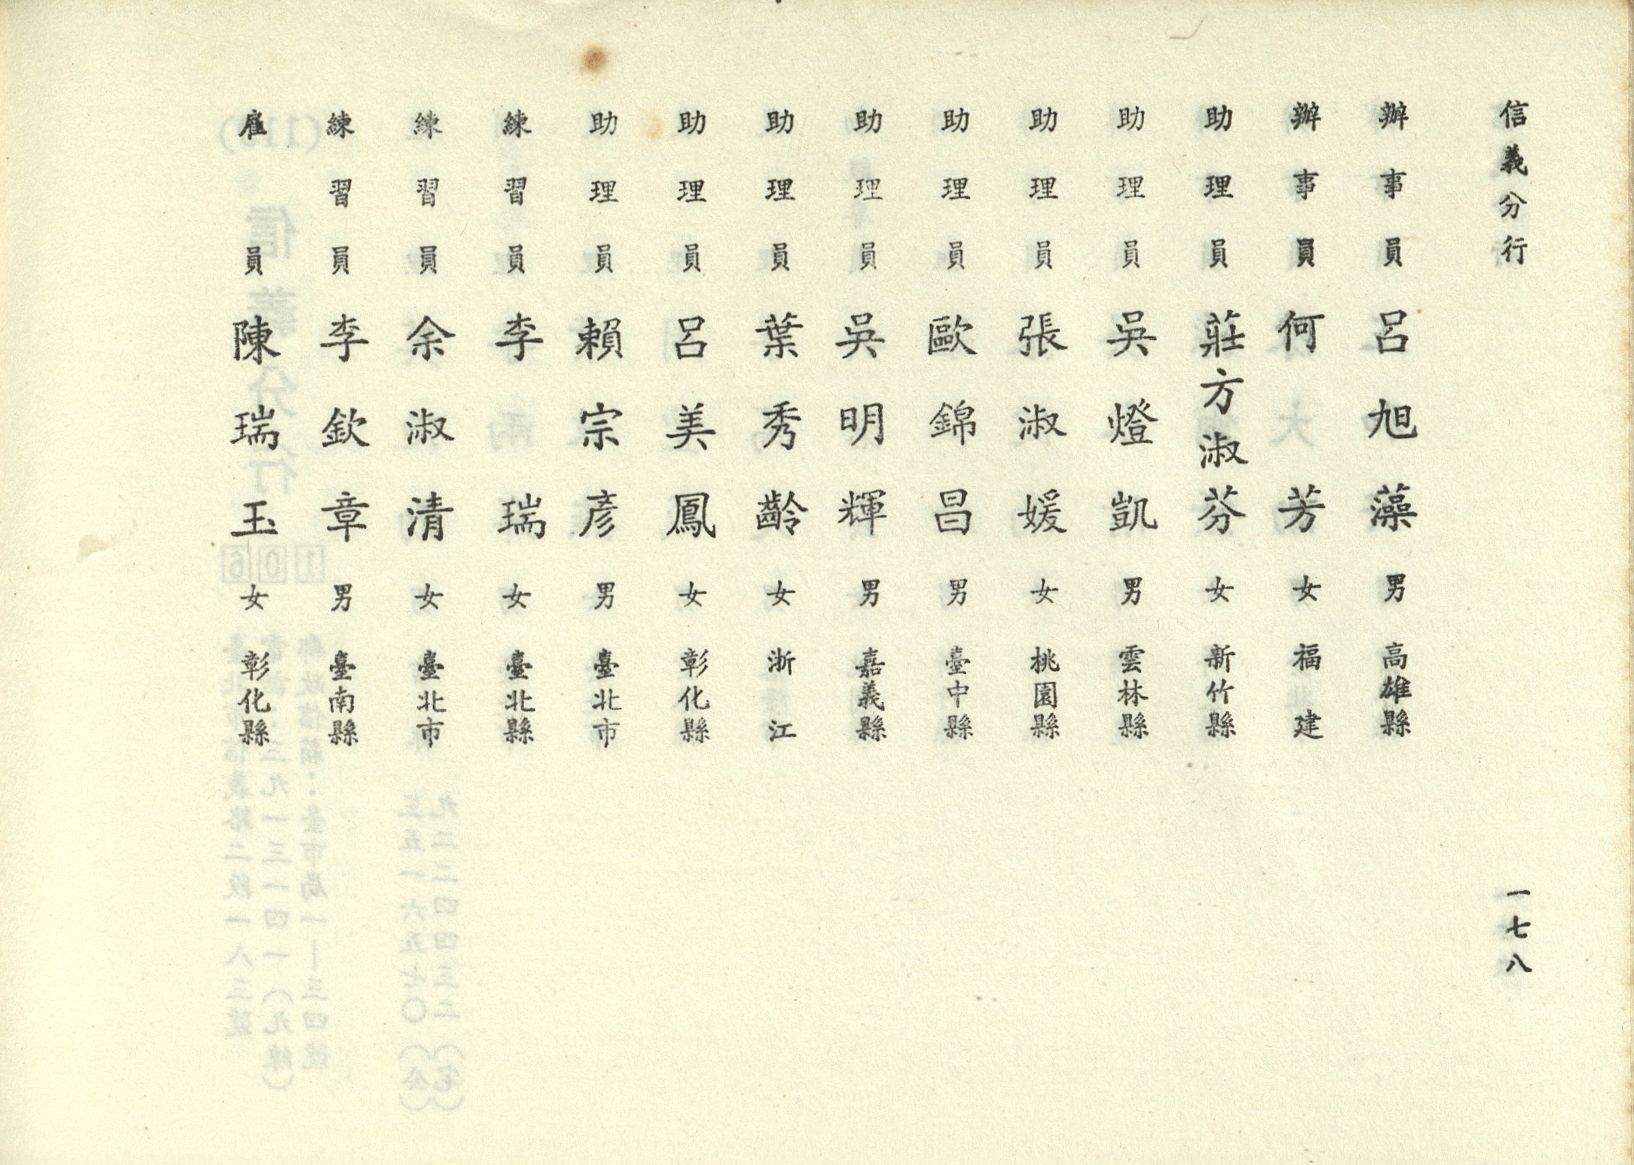 信義分行
一七八
辦事員 呂旭藻 男 高雄縣
辦事員 何芳 女 福建
助理員 莊方淑芬 女 新竹縣
助理員 吳燈凱 男 雲林縣
助理員 張淑媛 女 桃園縣
助理員 歐錦昌 男 臺中縣
助理員 吳明輝 男 嘉義縣
助理員 葉秀齡 女 浙江
助理員 呂美鳳 女 彰化縣
助理員 賴宗彥 男 臺北市
練習員 李瑞 女 臺北縣
練習員 余淑清 女 臺北市
練習員 李欽章 男 臺南縣
雇員 陳瑞玉 女 彰化縣